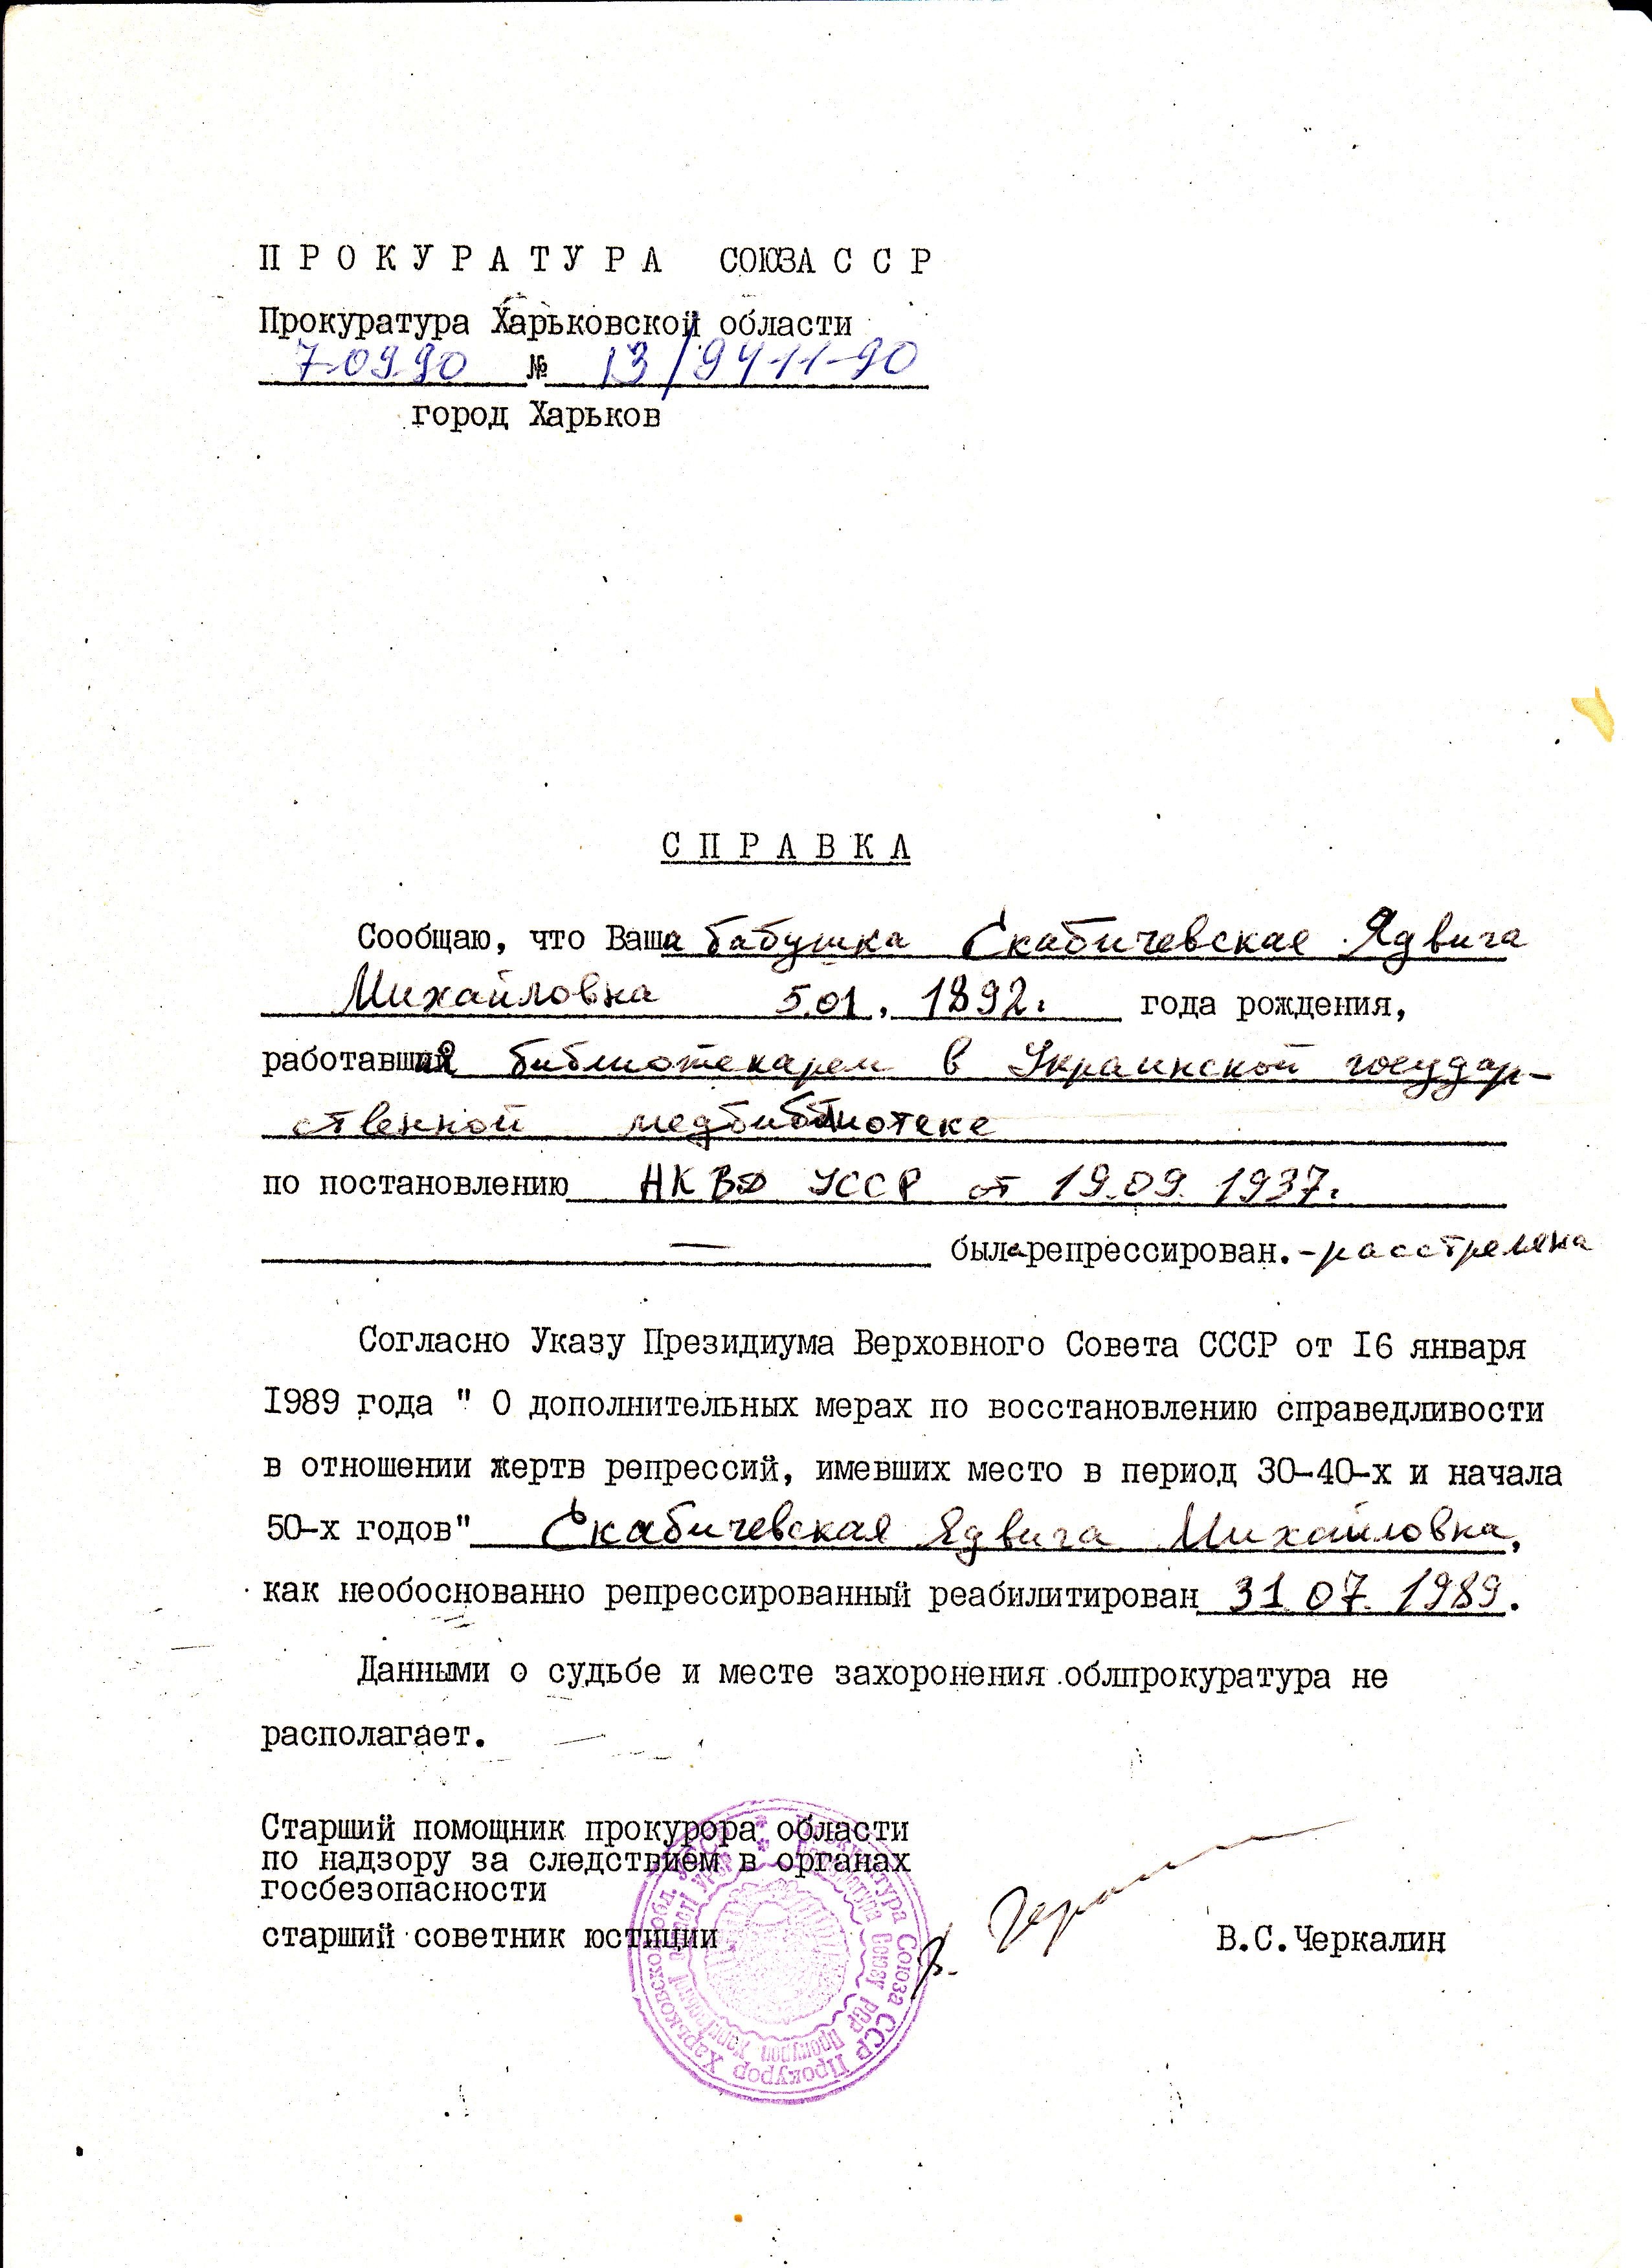 ПРОКУРАТУРА СОЮЗА ССР
Прокуратура Харьковской области
7.09.90 № 13/9411-90
город Харьков
СПРАВКА
Сообщаю, что Ваша бабушка Скабичевская Ядвига
Михайловна 5.01. 1892. года рождения,
работавшая библиотекарем в Украинской государ-
ственной медбиблиотеке
по постановлению НКВД УССР от 19.09. 1937.
— была репрессирован. - расстреляна
Согласно Указу Президиума Верховного Совета СССР от I6 января
I989 года " О дополнительных мерах по восстановлению справедливости
в отношении жертв репрессий, имевших место в период 30-40-х и начала
50-х годов" Скабичевская Ядвига Михайловна,
как необоснованно репрессированный реабилитирован 31.07. 1989.
Данными о судьбе и месте захоронения облпрокуратура не
располагает.
Старший помощник прокурора области
по надзору за следствием в органах
госбезопасности
старший советник юстиции
В.С.Черкалин
Прокуратура Союза ССР Прокурор Харьковской обл. УССР